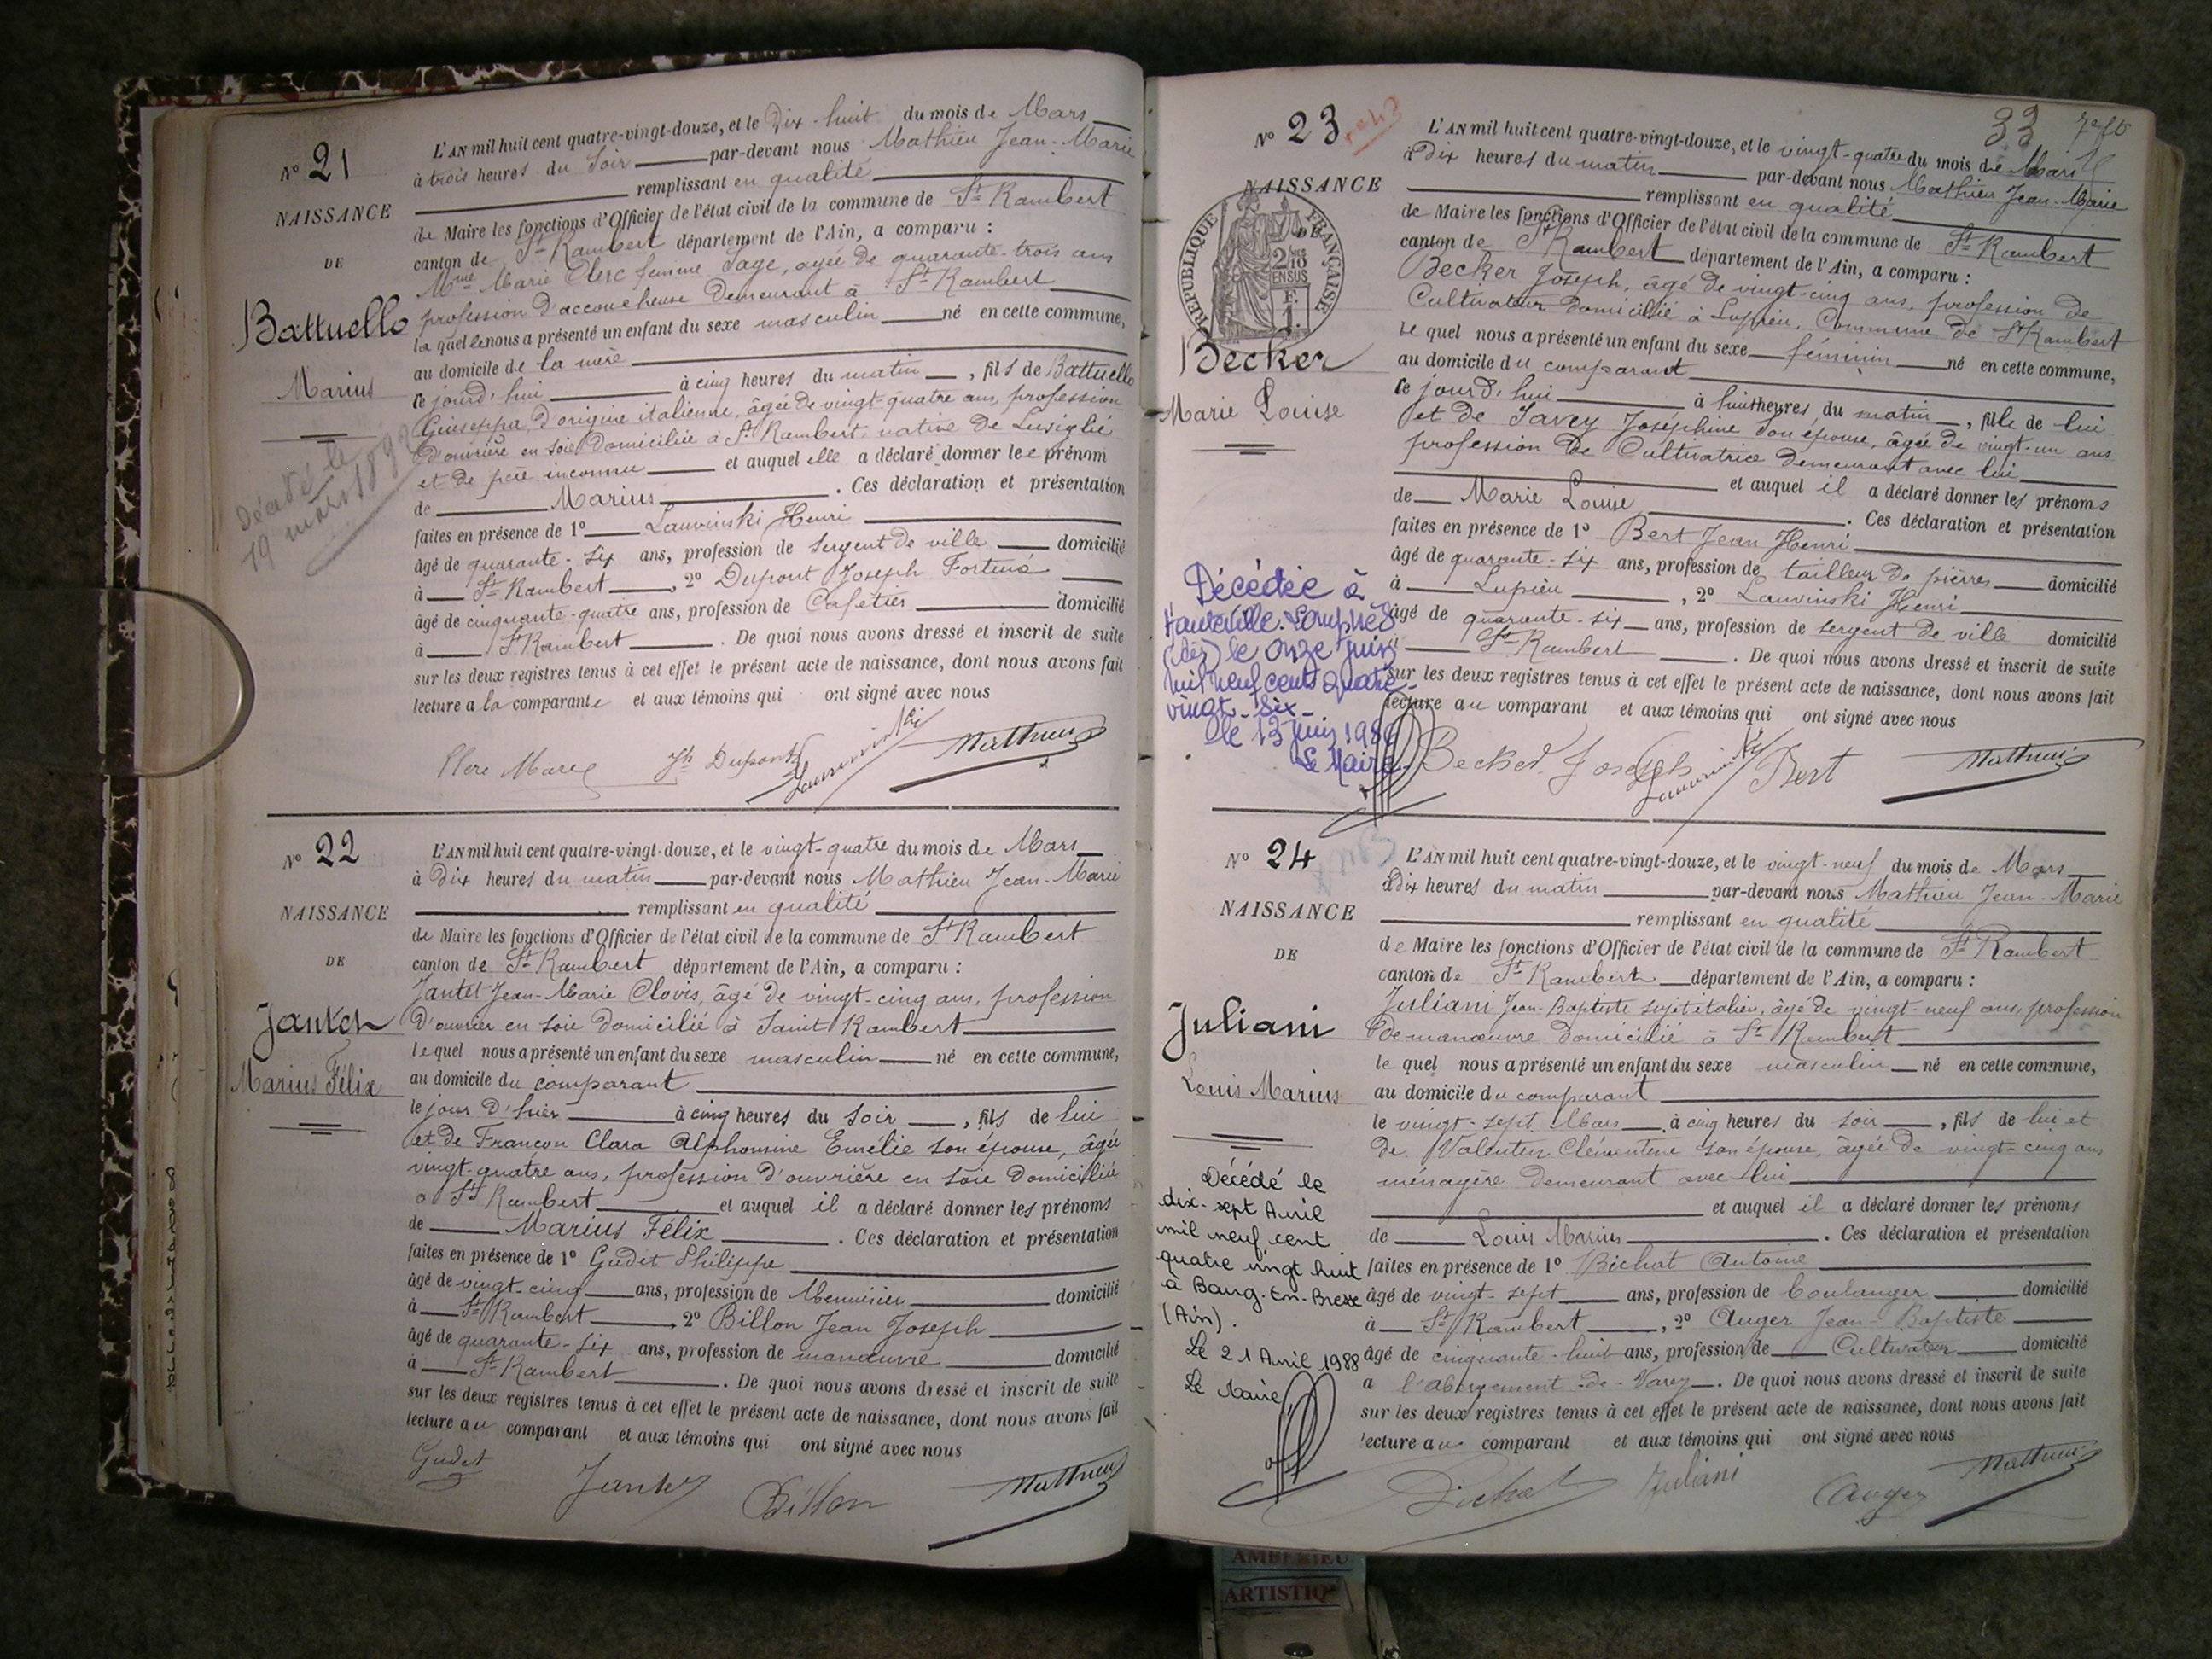 N° 21
NAISSANCE
DE
Battuello
Marius
Décédé le
19 mars 1892
L'AN mil huit cent quatre-vingt-douze, et le Dix-huit du mois de Mars
à trois heures du Soir par-devant nous Mathieu Jean-Marie
remplissant en qualité
de Maire les fonctions d'Officier de l'état civil de la commune de St Rambert
canton de St Rambert département de l'Ain, a comparu :
Mme Marie Clerc femme Sage, agée de quarante-trois ans
profession d'accoucheuse demeurant à St Rambert
la quelle nous a présenté un enfant du sexe masculin né en cette commune,
au domicile de la mère
ce jourd'hui à cinq heures du matin, fils de Battuello
Giuseppa, d'origine italienne, âgée de vingt-quatre ans, profession
d'ouvrière en soie domiciliée à St Rambert, native de Lusiglié
et de père inconnu et auquel elle a déclaré donner le prénom
de Marius. Ces déclaration et présentation
faites en présence de 1° Lauvinski Henri
âgé de quarante-six ans, profession de sergent de ville domicilié
à St Rambert, 2° Dupont Joseph Fortuné
âgé de cinquante-quatre ans, profession de Cafetier domicilié
à St Rambert. De quoi nous avons dressé et inscrit de suite
sur les deux registres tenus à cet effet le présent acte de naissance, dont nous avons fait
lecture a la comparante et aux témoins qui ont signé avec nous
Clerc Marie Jh Dupont Lauvinski Mathieu
N° 22
NAISSANCE
DE
Jantet
Marius Félix
L'AN mil huit cent quatre-vingt-douze, et le vingt-quatre du mois de Mars
à Dix heures du matin par-devant nous Mathieu Jean-Marie
remplissant en qualité
de Maire les fonctions d'Officier de l'état civil de la commune de St Rambert
canton de St Rambert département de l'Ain, a comparu :
Jantet Jean-Marie Clovis, âgé de vingt-cinq ans, profession
d'ouvrier en soie domicilié à Saint Rambert
le quel nous a présenté un enfant du sexe masculin né en cette commune,
au domicile du comparant
le jour d'hier à cinq heures du Soir, fils de lui
et de Françon Clara Alphonsine Emélie son épouse, âgée
vingt-quatre ans, profession d'ouvrière en soie domiciliée
à St Rambert et auquel il a déclaré donner les prénoms
de Marius Félix. Ces déclaration et présentation
faites en présence de 1° Gudet Philippe
âgé de vingt-cinq ans, profession de Menuisier domicilié
à St Rambert, 2° Billon Jean Joseph
âgé de quarante-six ans, profession de manœuvre domicilié
à St Rambert. De quoi nous avons dressé et inscrit de suite
sur les deux registres tenus à cet effet le présent acte de naissance, dont nous avons fait
lecture au comparant et aux témoins qui ont signé avec nous
Gudet Jantet Billon Mathieu
33
N° 23
NAISSANCE
DE
RÉPUBLIQUE FRANÇAISE
2/10 EN SUS
F. 1.
Becker
Marie Louise
Décédée à
Hauteville-Lompnes
le onze juin
mil neuf cent quatre-
vingt-six-
le 13 juin 1986
Le Maire
L'AN mil huit cent quatre-vingt-douze, et le vingt-quatre du mois de Mars
à Dix heures du matin par-devant nous Mathieu Jean-Marie
remplissant en qualité
de Maire les fonctions d'Officier de l'état civil de la commune de St Rambert
canton de St Rambert département de l'Ain, a comparu :
Becker Joseph, âgé de vingt-cinq ans, profession de
Cultivateur domicilié à Lupieu, Commune de St Rambert
le quel nous a présenté un enfant du sexe féminin né en cette commune,
au domicile du comparant
ce jourd'hui à huit heures du matin, fille de lui
et de Savey Joséphine son épouse, âgée de vingt-un ans
profession de Cultivatrice demeurant avec lui
et auquel il a déclaré donner les prénoms
de Marie Louise. Ces déclaration et présentation
faites en présence de 1° Bert Jean Henri
âgé de quarante-six ans, profession de tailleur de pierres domicilié
à Lupieu, 2° Lauvinski Henri
âgé de quarante-six ans, profession de sergent de ville domicilié
à St Rambert. De quoi nous avons dressé et inscrit de suite
sur les deux registres tenus à cet effet le présent acte de naissance, dont nous avons fait
lecture au comparant et aux témoins qui ont signé avec nous
Becker Joseph Lauvinski Bert Mathieu
N° 24
NAISSANCE
DE
Juliani
Louis Marius
Décédé le
dix-sept Avril
mil neuf cent
quatre vingt huit
à Bourg-En-Bresse
(Ain).
Le 21 Avril 1988
Le Maire
L'AN mil huit cent quatre-vingt-douze, et le vingt-neuf du mois de Mars
à dix heures du matin par-devant nous Mathieu Jean-Marie
remplissant en qualité
de Maire les fonctions d'Officier de l'état civil de la commune de St Rambert
canton de St Rambert département de l'Ain, a comparu :
Juliani Jean-Baptiste sujet italien, âgé de vingt-neuf ans, profession
de manœuvre domicilié à St Rambert
le quel nous a présenté un enfant du sexe masculin né en cette commune,
au domicile du comparant
le vingt-sept Mars à cinq heures du soir, fils de lui et
de Valentin Clémentine son épouse, âgée de vingt-cinq ans
ménagère demeurant avec lui
et auquel il a déclaré donner les prénoms
de Louis Marius. Ces déclaration et présentation
faites en présence de 1° Bichat Antoine
âgé de vingt-sept ans, profession de boulanger domicilié
à St Rambert, 2° Auger Jean-Baptiste
âgé de cinquante-huit ans, profession de Cultivateur domicilié
à l'abergement-de-Varey. De quoi nous avons dressé et inscrit de suite
sur les deux registres tenus à cet effet le présent acte de naissance, dont nous avons fait
lecture au comparant et aux témoins qui ont signé avec nous
Bichat Juliani Auger Mathieu
AMBERIEU
ARTISTIQ